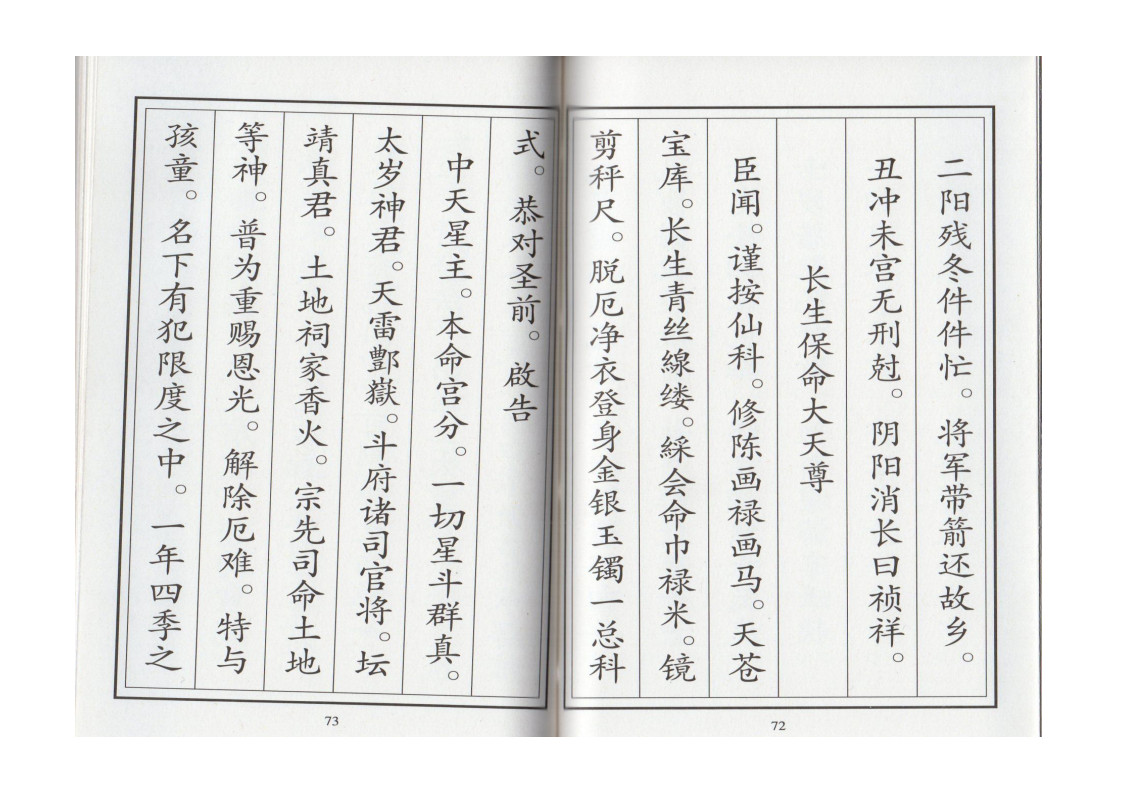 二阳残冬件件忙。将军带箭还故乡。
丑冲未宫无刑尅。阴阳消长曰祯祥。
长生保命大天尊
臣闻。谨按仙科。修陈画禄画马。天苍
宝库。长生青丝線缕。綵会命巾禄米。镜
剪秤尺。脱厄净衣登身金银玉镯一总科
72
式。恭对圣前。啟告
中天星主。本命宫分。一切星斗群真。
太岁神君。天雷酆嶽。斗府诸司官将。坛
靖真君。土地祠家香火。宗先司命土地
等神。普为重赐恩光。解除厄难。特与
孩童。名下有犯限度之中。一年四季之
73